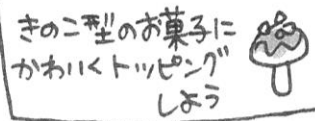 きのこ型のお菓子に
かわいくトッピング
しよう